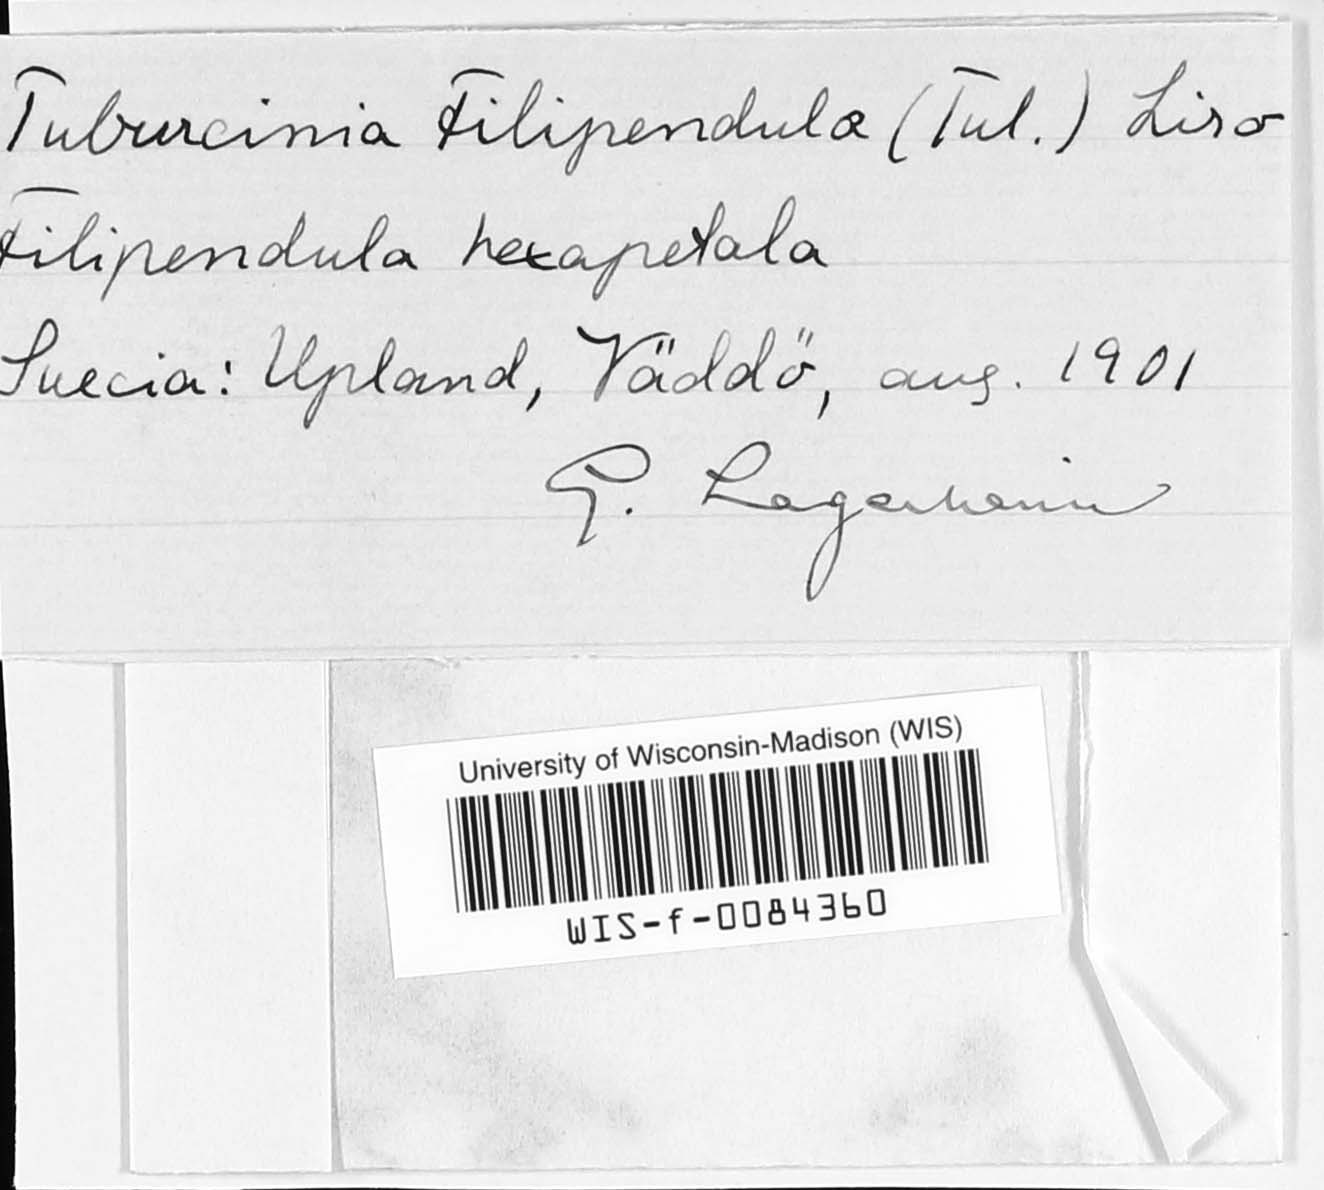 Tuburcinia Filipendulæ (Tul.) Liro
Filipendula hexapetala
Suecia: Upland, Väddö, aug. 1901
G. Lagerheim
University of Wisconsin-Madison (WIS)
WIS-f-0084360